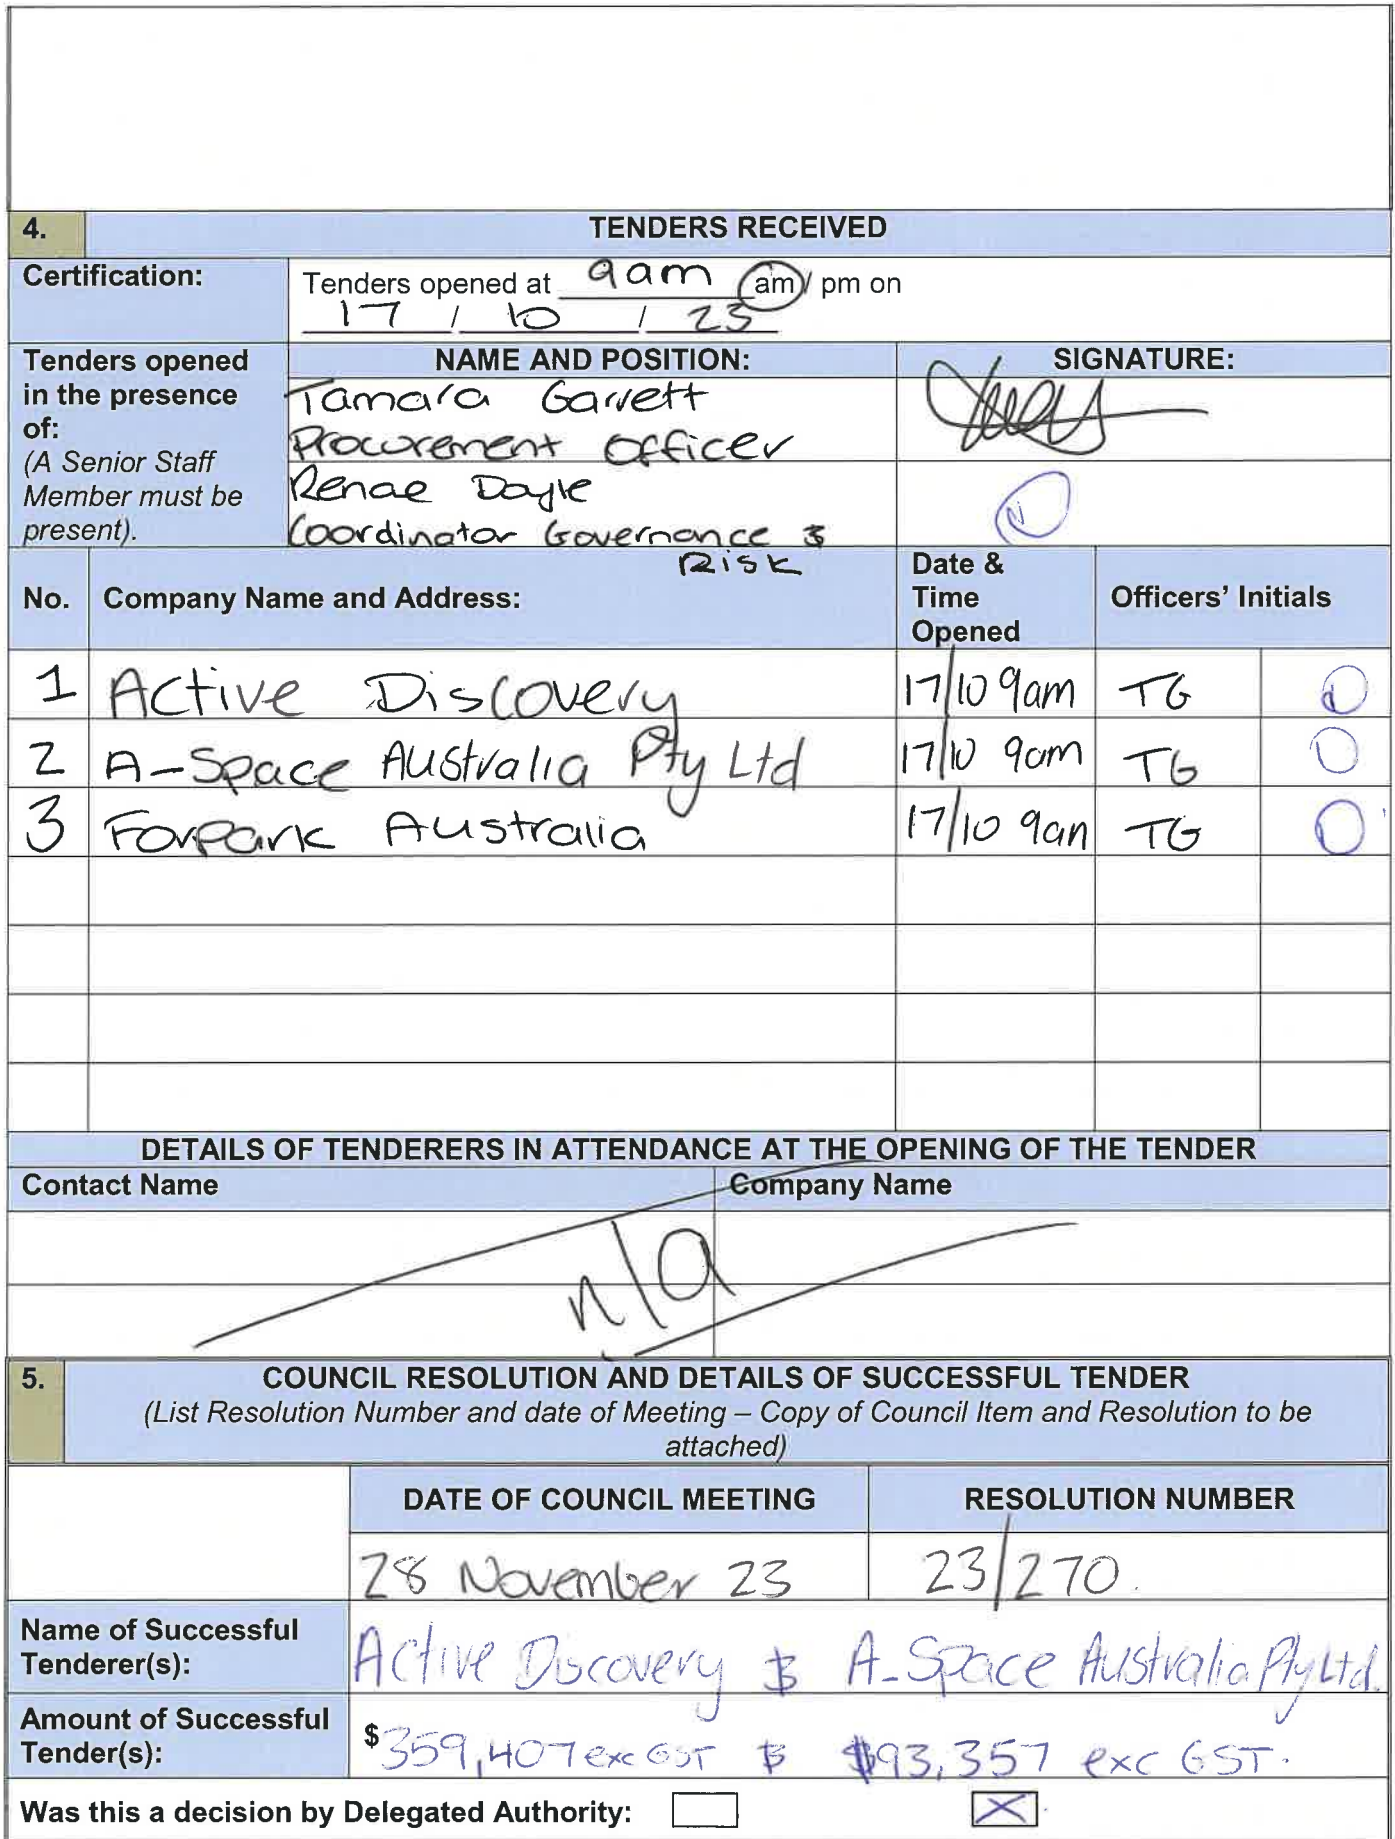 4. TENDERS RECEIVED
Certification: Tenders opened at 9am am / pm on
17 / 10 / 23
Tenders opened in the presence of: (A Senior Staff Member must be present).
NAME AND POSITION: SIGNATURE:
Tamara Garrett
Procurement Officer
Renae Doyle
Coordinator Governance &
Risk
No. Company Name and Address: Date & Time Opened Officers' Initials
1 Active Discovery 17/10 9am TG
2 A-Space Australia Pty Ltd 17/10 9am TG
3 Forpark Australia 17/10 9am TG
DETAILS OF TENDERERS IN ATTENDANCE AT THE OPENING OF THE TENDER
Contact Name Company Name
n/a
5. COUNCIL RESOLUTION AND DETAILS OF SUCCESSFUL TENDER
(List Resolution Number and date of Meeting – Copy of Council Item and Resolution to be
attached)
DATE OF COUNCIL MEETING RESOLUTION NUMBER
28 November 23 23/270.
Name of Successful Tenderer(s): Active Discovery & A-Space Australia Pty Ltd.
Amount of Successful Tender(s): $359,407 exc GST & $93,357 exc GST.
Was this a decision by Delegated Authority: